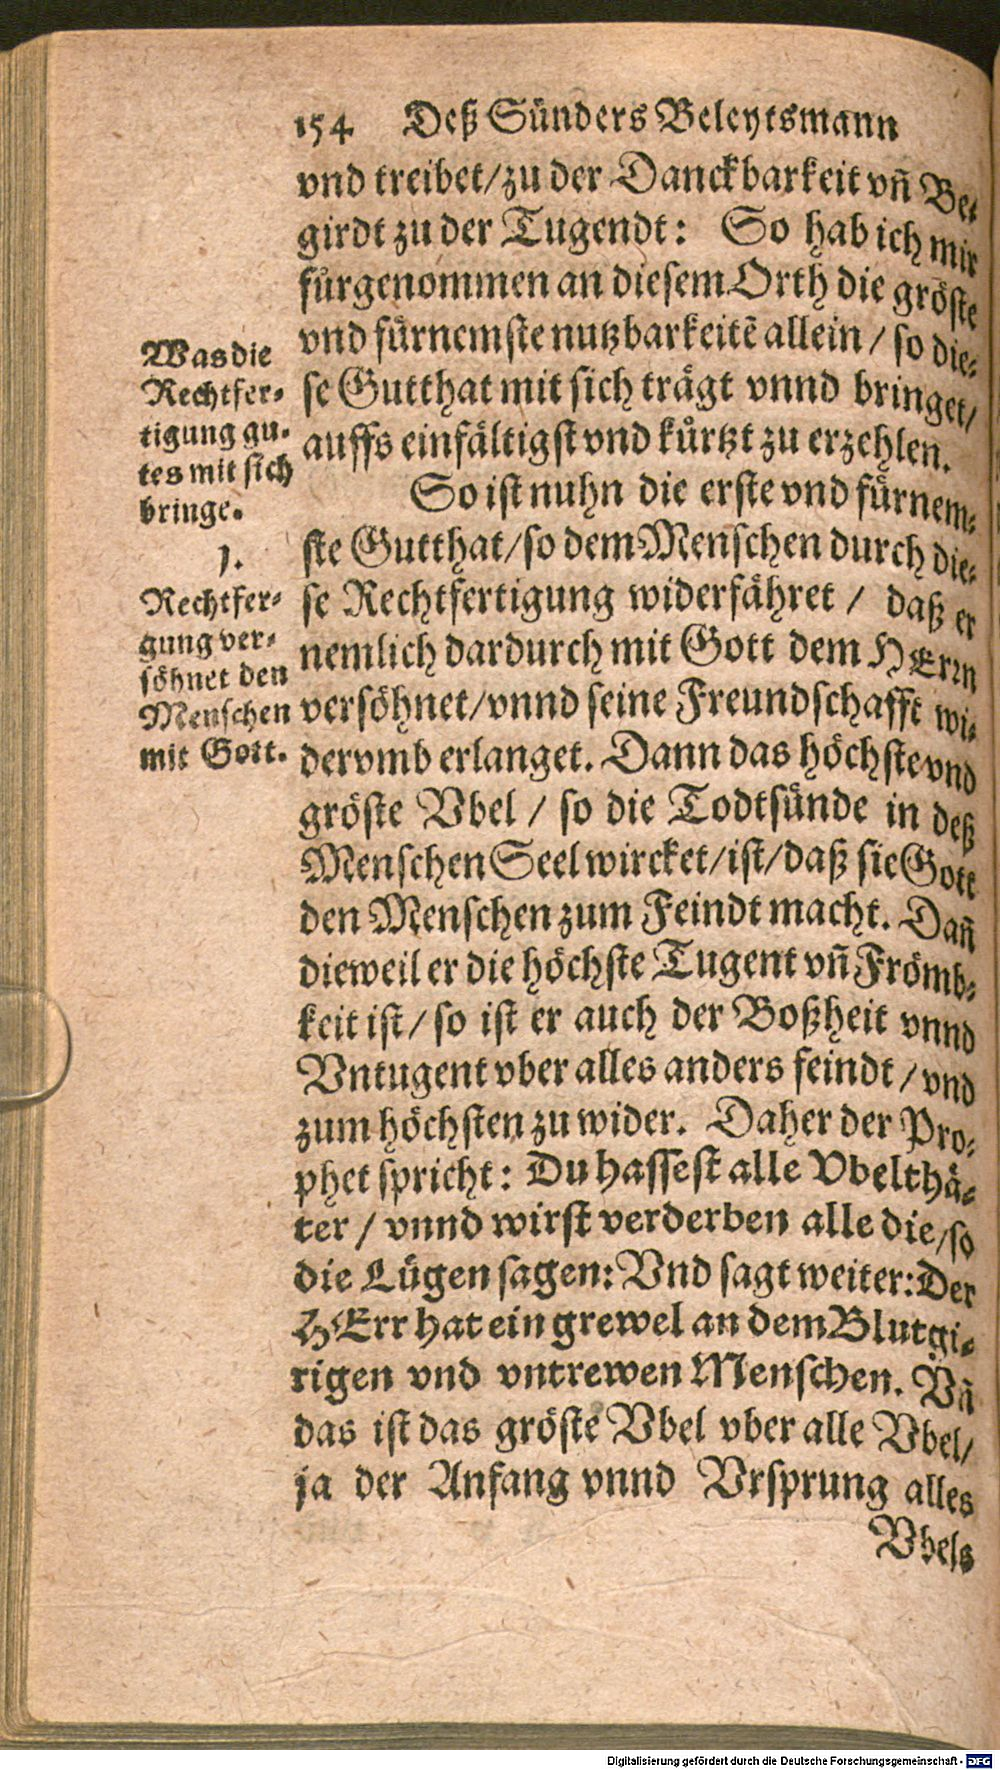 154 Deß Sünders Beleytsmann
vnd treibet/zu der Danckbarkeit vn̄ Be-
girdt zu der Tugendt: So hab ich mir
fürgenommen an diesem Orth die gröste
vnd fürnemste nutzbarkeitē allein / so die-
se Gutthat mit sich trägt vnnd bringet/
auffs einfältigst vnd kürtzt zu erzehlen.
So ist nuhn die erste vnd fürnem-
ste Gutthat/so dem Menschen durch die-
se Rechtfertigung widerfähret / daß er
nemlich dardurch mit Gott dem HErrn
versöhnet/vnnd seine Freundschafft wi-
dervmb erlanget. Dann das höchste vnd
gröste Vbel / so die Todtsünde in deß
Menschen Seel wircket/ist/daß sie Gott
den Menschen zum Feindt macht. Dan̄
dieweil er die höchste Tugent vn̄ Frömb-
keit ist/so ist er auch der Boßheit vnnd
Vntugent vber alles anders feindt/vnd
zum höchsten zu wider. Daher der Pro-
phet spricht: Du hassest alle Vbelthä-
ter / vnnd wirst verderben alle die/so
die Lügen sagen: Vnd sagt weiter: Der
HErr hat ein grewel an dem Blutgi-
rigen vnd vntrewen Menschen. Vn̄
das ist das gröste Vbel vber alle Vbel/
ja der Anfang vnnd Vrsprung alles
Vbels
Was die
Rechtfer-
tigung gu-
tes mit sich
bringe.
1.
Rechtfer-
gung ver-
söhnet den
Menschen
mit Gott.
Digitalisierung gefördert durch die Deutsche Forschungsgemeinschaft - DFG